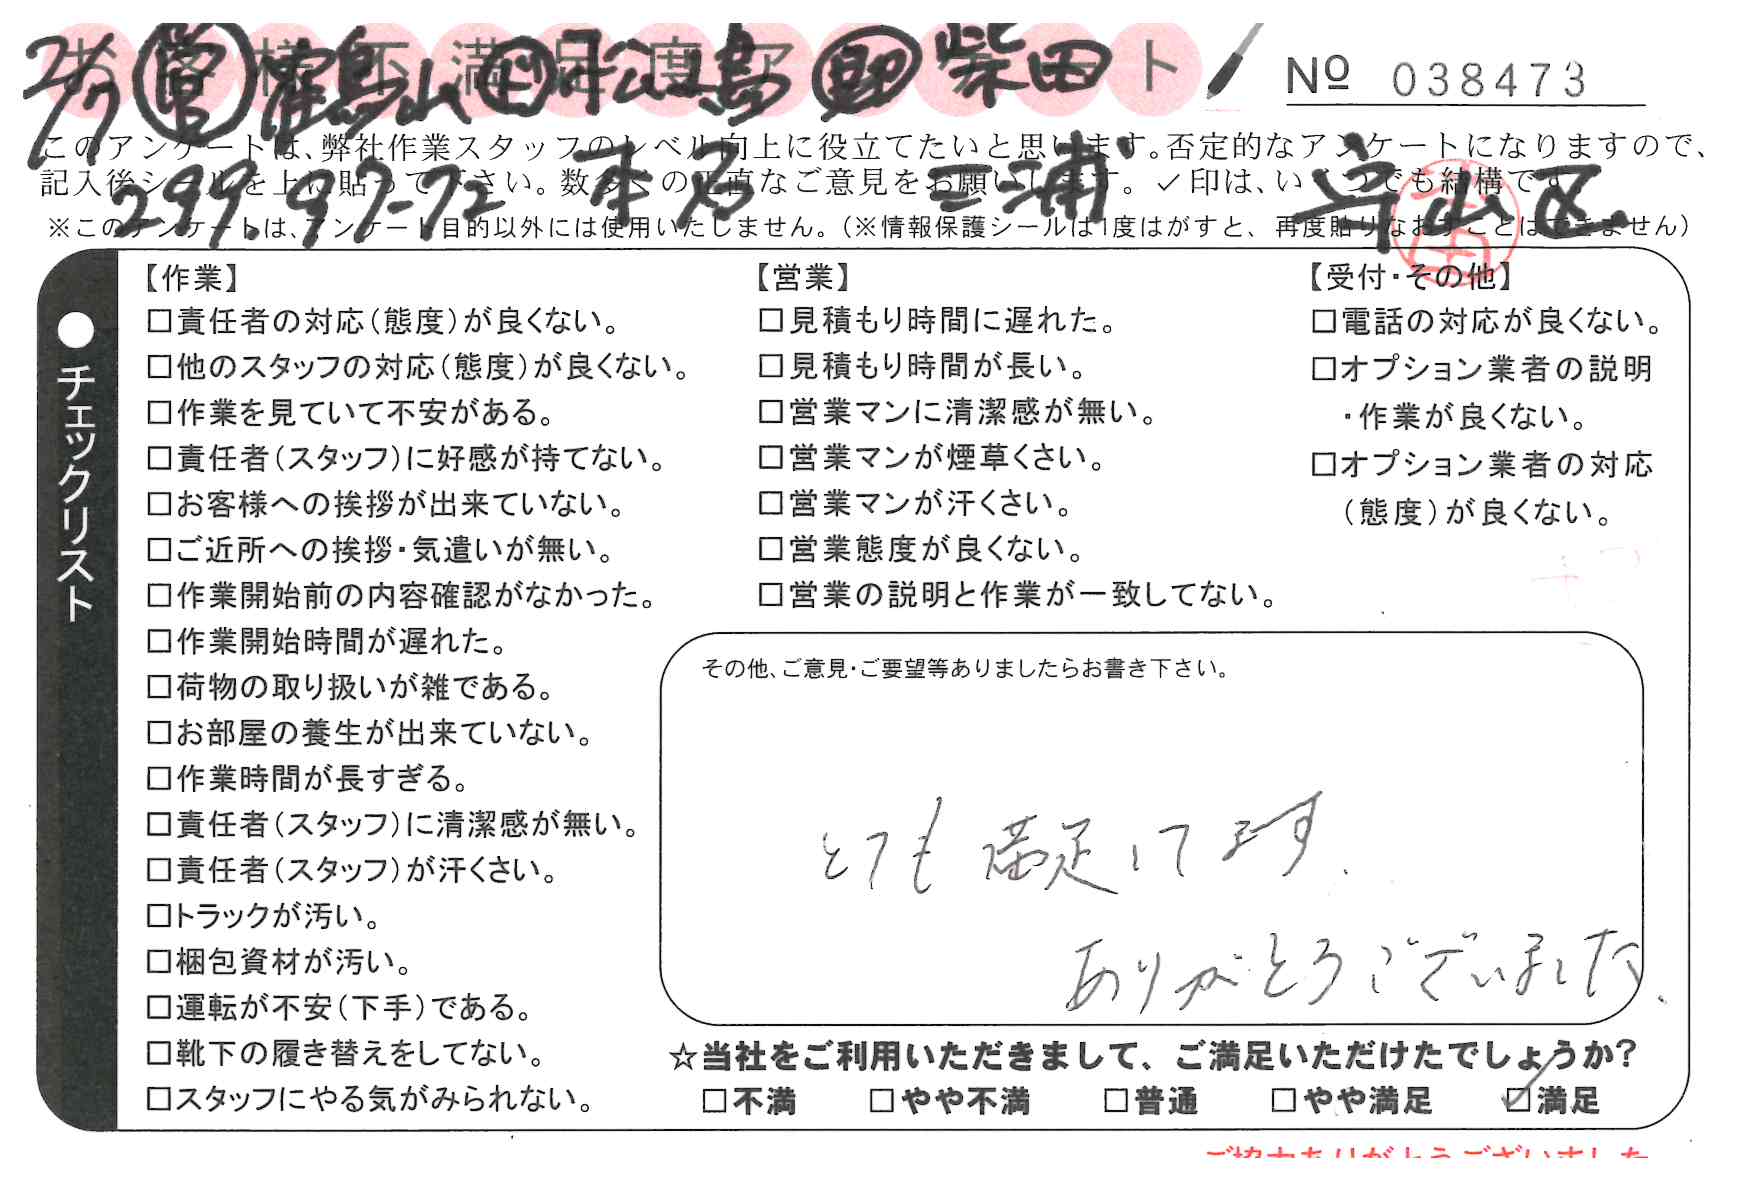 お客様不満足度アンケート
2/7 営 鶴山 作 松島 助 柴田
№ 038473
このアンケートは、弊社作業スタッフのレベル向上に役立てたいと思います。否定的なアンケートになりますので、
記入後シールを上に貼って下さい。数多くの正直なご意見をお願いします。✓印は、いくつでも結構です。
299.97-72 本店 三浦
※このアンケートは、アンケート目的以外には使用いたしません。(※情報保護シールは1度はがすと、再度貼りなおすことはできません)
●チェックリスト
【作業】
□責任者の対応(態度)が良くない。
□他のスタッフの対応(態度)が良くない。
□作業を見ていて不安がある。
□責任者(スタッフ)に好感が持てない。
□お客様への挨拶が出来ていない。
□ご近所への挨拶・気遣いが無い。
□作業開始前の内容確認がなかった。
□作業開始時間が遅れた。
□荷物の取り扱いが雑である。
□お部屋の養生が出来ていない。
□作業時間が長すぎる。
□責任者(スタッフ)に清潔感が無い。
□責任者(スタッフ)が汗くさい。
□トラックが汚い。
□梱包資材が汚い。
□運転が不安(下手)である。
□靴下の履き替えをしてない。
□スタッフにやる気がみられない。
【営業】
□見積もり時間に遅れた。
□見積もり時間が長い。
□営業マンに清潔感が無い。
□営業マンが煙草くさい。
□営業マンが汗くさい。
□営業態度が良くない。
□営業の説明と作業が一致してない。
【受付・その他】
□電話の対応が良くない。
□オプション業者の説明
・作業が良くない。
□オプション業者の対応
(態度)が良くない。
その他、ご意見・ご要望等ありましたらお書き下さい。
とても満足してます.
ありがとうございました、
☆当社をご利用いただきまして、ご満足いただけたでしょうか?
□不満 □やや不満 □普通 □やや満足 ☑満足
ご協力ありがとうございました